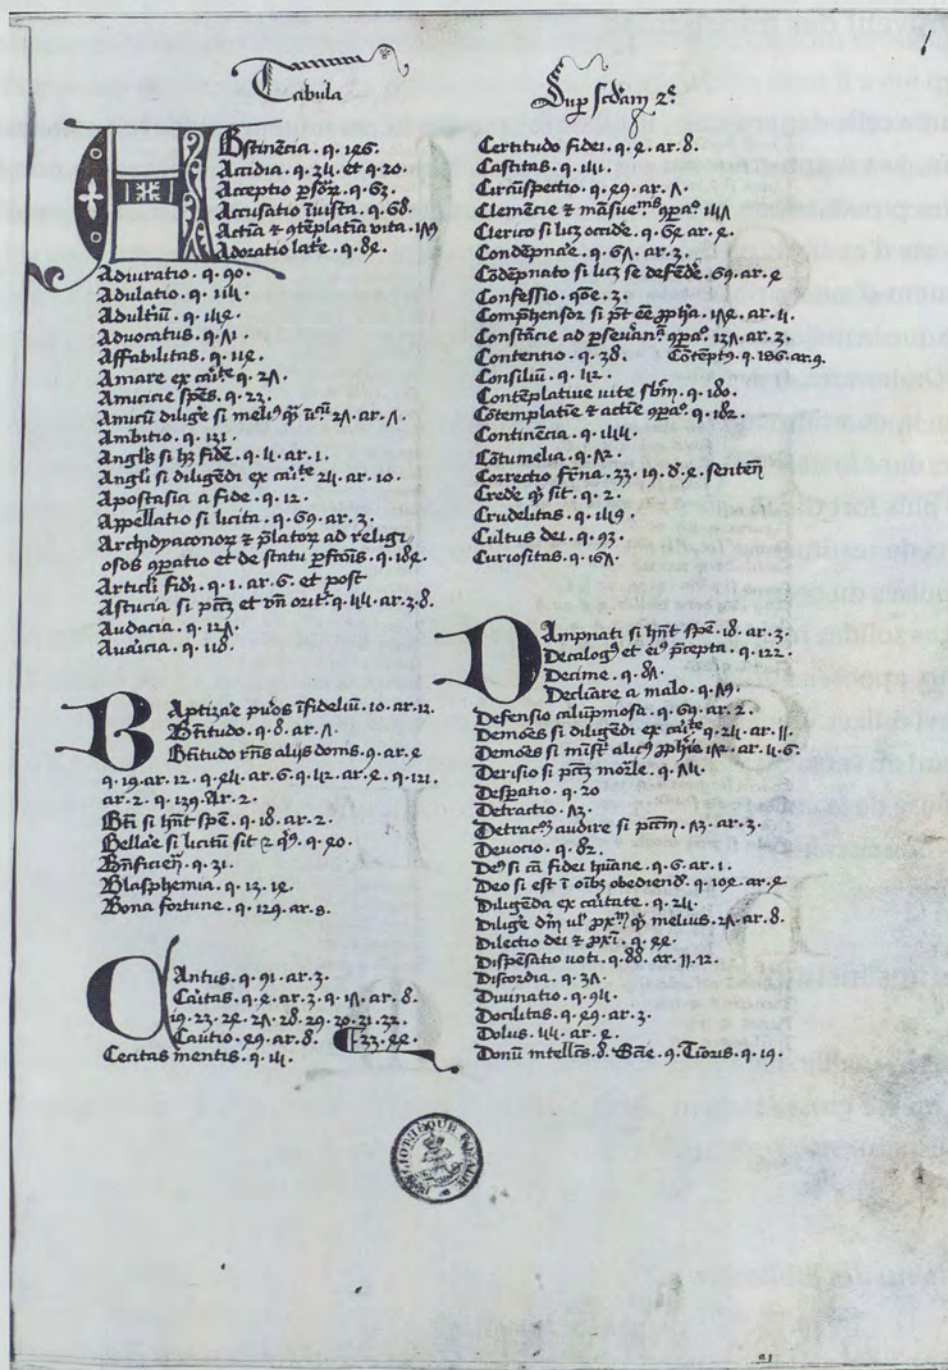 Tabula
Sup scdam 2e
1
ABstinēcia . q . 146 .
Accidia . q . 35 . et q . 20 .
Acceptio psōꝝ . q . 63 .
Accusatio īiusta . q . 68 .
Actīa ⁊ ꝯtēplatīa vita . 179
Adoratio latͥe . q . 84 .
Adiuratio . q . 90 .
Adulatio . q . 115 .
Adultiū . q . 154 .
Advocatus . q . 71 .
Affabilitas . q . 114 .
Amare ex caͥtͭe q . 27 .
Amicicie spēs . q . 23 .
Amicū diligˀe si meliꝰ ꝙ̄ īīcū 27 . ar . 7 .
Ambitio . q . 131 .
Angls si hꝫ fidē . q . 5 . ar . 1 .
Angli si diligēdi ex caͥtͭe 25 . ar . 10 .
Apostasia a fide . q . 12 .
Appellatio si licita . q . 69 . ar . 3 .
Archidyaconoꝝ ⁊ p̄latoꝝ ad religi
osos ꝯpatio et de statu pfcōis . q . 184 .
Articli fidͥ . q . 1 . ar . 6 . et post
Astucia si pctm̄ et vn̄ oritͬ . q . 55 . ar . 3 . 8 .
Audacia . q . 127 .
Auaͥicia . q . 118 .
BAptizaͬe puͦos īfideliū . 10 . ar . 12 .
Btītudo . q . 8 . ar . 7 .
Btītudo rn̄s alijs doms . 9 . ar . 4
q . 19 . ar . 12 . q . 45 . ar . 6 . q . 52 . ar . 4 . q . 121 .
ar . 2 . q . 139 . Ar . 2 .
Btī si hn̄t spē . q . 18 . ar . 2 .
Bellaͬe si licitū sit ⁊ qͦꝰ . q . 40 .
Bn̄ficien̄ . q . 31 .
Blasphemia . q . 13 . 14 .
Bona fortune . q . 129 . ar . 8 .
CAntus . q . 91 . ar . 3 .
Caͥitas . q . 4 . ar . 3 . q . 17 . ar . 8 .
19 . 23 . 24 . 27 . 28 . 29 . 30 . 31 . 32 .
Cautio . 49 . ar . 8 . ¶ 33 . 44 .
Cecitas mentis . q . 15 .
Certitudo fidei . q . 4 . ar . 8 .
Castitas . q . 151 .
Circūspectio . q . 49 . ar . 7 .
Clemēcie ⁊ māsueᵐˢ ꝯpaͦ . 157
Clerico si licꝫ occidͤe . q . 64 ar . 4 .
Condēpnaͬe . q . 67 . ar . 3 .
Cōdēpnato si licꝫ se defēdˀe . 69 . ar . 4
Confessio . qōe . 3 .
Comp̄hensor si p̄t eē ꝓpha . 174 . ar . 5 .
Constācie ad pseuͬanͣ ꝯpaͦ . 137 ar . 3 .
Contentio . q . 38 . Cōtēptꝰ . q . 186 . ar . 9 .
Consiliū . q . 52 .
Contēplatiue uite sbm̄ . q . 180 .
Cōtemplatīe ⁊ actīe ꝯpaͦ . q . 182 .
Continēcia . q . 155 .
Cōtumelia . q . 72 .
Correctio frn̄a . 33 . 19 . d . 4 . senten̄
Credͤe qͥ sit . q . 2 .
Crudelitas . q . 159 .
Cultus dei . q . 93 .
Curiositas . q . 167 .
DAmpnati si hn̄t spē . 18 . ar . 3 .
Decalogꝰ et eiꝰ p̄cepta . q . 122 .
Decime . q . 87 .
Decliāre a malo . q . 79 .
Defensio calūpmosa . q . 69 . ar . 2 .
Demōes si diligēdi ex caͥtͭe . q . 25 . ar . 11 .
Demōes si mīstͬ alicꝰ ꝓphīe 172 . ar . 5 . 6 .
Derisio si pctm̄ morͣle . q . 75 .
Despatio . q . 20
Detractio . 73 .
Detracͦꝫ audire si pccm̄ . 73 . ar . 3 .
Deuocio . q . 82 .
Deꝰ si cā fidei hūane . q . 6 . ar . 1 .
Deo si est ī oībꝫ obediendͫ . q . 104 . ar . 4
Diligēda ex caͥitate . q . 25 .
Diligˀe dm̄ ul' pxᵐ qͥ melius . 27 . ar . 8 .
Dilectio dei ⁊ pxī . q . 44 .
Dispēsatio uoti . q . 88 . ar . 11 . 12 .
Discordia . q . 37 .
Diuinatio . q . 95 .
Docilitas . q . 49 . ar . 3 .
Dolus . 55 . ar . 4 .
Donū intellc̄s . 8 . Scīe . 9 . Tīoris . q . 19 .